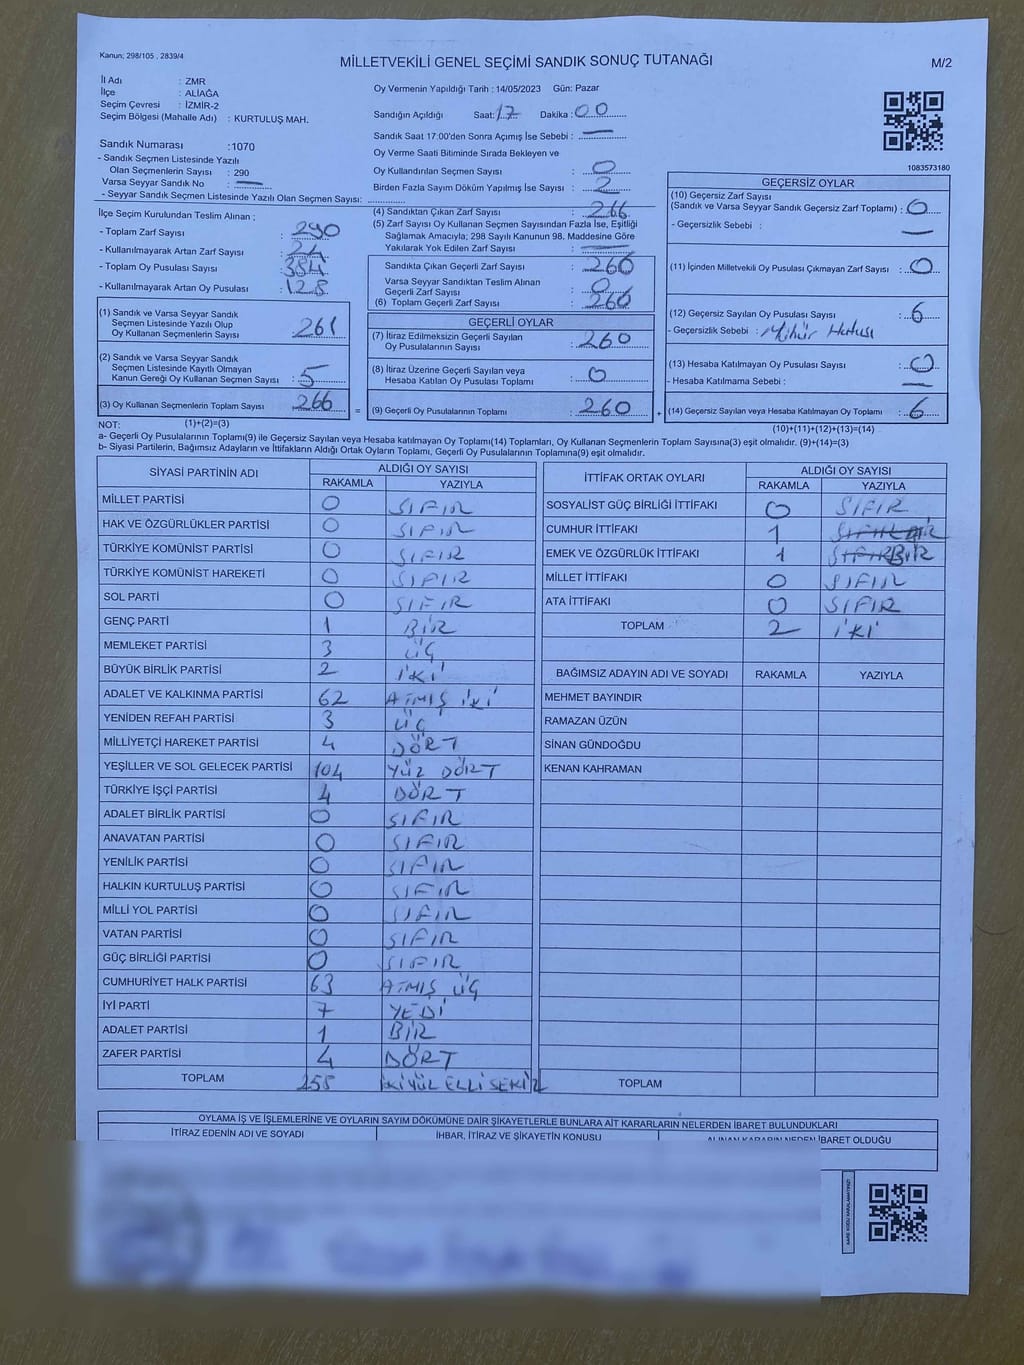 Kanun; 298/105 , 2839/4
MİLLETVEKİLİ GENEL SEÇİMİ SANDIK SONUÇ TUTANAĞI
M/2
İl Adı : ZMR
İlçe : ALİAĞA
Seçim Çevresi : İZMİR-2
Seçim Bölgesi (Mahalle Adı) : KURTULUŞ MAH.
Sandık Numarası :1070
- Sandık Seçmen Listesinde Yazılı
Olan Seçmenlerin Sayısı : 290
Varsa Seyyar Sandık No : —
- Seyyar Sandık Seçmen Listesinde Yazılı Olan Seçmen Sayısı:
Oy Vermenin Yapıldığı Tarih : 14/05/2023 Gün: Pazar
Sandığın Açıldığı Saat: 17 Dakika: 00
Sandık Saat 17:00'den Sonra Açımış İse Sebebi : —
Oy Verme Saati Bitiminde Sırada Bekleyen ve
Oy Kullandırılan Seçmen Sayısı : 0
Birden Fazla Sayım Döküm Yapılmış İse Sayısı : 2
1083573180
İlçe Seçim Kurulundan Teslim Alınan ;
- Toplam Zarf Sayısı : 290
- Kullanılmayarak Artan Zarf Sayısı : 24
- Toplam Oy Pusulası Sayısı : 384
- Kullanılmayarak Artan Oy Pusulası : 128
(1) Sandık ve Varsa Seyyar Sandık
Seçmen Listesinde Yazılı Olup
Oy Kullanan Seçmenlerin Sayısı : 261
(2) Sandık ve Varsa Seyyar Sandık
Seçmen Listesinde Kayıtlı Olmayan
Kanun Gereği Oy Kullanan Seçmen Sayısı : 5
(3) Oy Kullanan Seçmenlerin Toplam Sayısı : 266
(1)+(2)=(3)
(4) Sandıktan Çıkan Zarf Sayısı : 266
(5) Zarf Sayısı Oy Kullanan Seçmen Sayısından Fazla İse, Eşitliği
Sağlamak Amacıyla; 298 Sayılı Kanunun 98. Maddesine Göre
Yakılarak Yok Edilen Zarf Sayısı : —
Sandıkta Çıkan Geçerli Zarf Sayısı : 260
Varsa Seyyar Sandıktan Teslim Alınan
Geçerli Zarf Sayısı : 0
(6) Toplam Geçerli Zarf Sayısı : 260
GEÇERLİ OYLAR
(7) İtiraz Edilmeksizin Geçerli Sayılan
Oy Pusulalarının Sayısı : 260
(8) İtiraz Üzerine Geçerli Sayılan veya
Hesaba Katılan Oy Pusulası Toplamı : 0
= (9) Geçerli Oy Pusulalarının Toplamı : 260
GEÇERSİZ OYLAR
(10) Geçersiz Zarf Sayısı
(Sandık ve Varsa Seyyar Sandık Geçersiz Zarf Toplamı) : 0
- Geçersizlik Sebebi : —
(11) İçinden Milletvekili Oy Pusulası Çıkmayan Zarf Sayısı : 0
(12) Geçersiz Sayılan Oy Pusulası Sayısı : 6
- Geçersizlik Sebebi : Mühür Hatası
(13) Hesaba Katılmayan Oy Pusulası Sayısı : 0
- Hesaba Katılmama Sebebi : —
+ (14) Geçersiz Sayılan veya Hesaba Katılmayan Oy Toplamı : 6
(10)+(11)+(12)+(13)=(14)
NOT:
a- Geçerli Oy Pusulalarının Toplamı(9) ile Geçersiz Sayılan veya Hesaba katılmayan Oy Toplamı(14) Toplamları, Oy Kullanan Seçmenlerin Toplam Sayısına(3) eşit olmalıdır. (9)+(14)=(3)
b- Siyasi Partilerin, Bağımsız Adayların ve İttifakların Aldığı Ortak Oyların Toplamı, Geçerli Oy Pusulalarının Toplamına(9) eşit olmalıdır.
SİYASİ PARTİNİN ADI ALDIĞI OY SAYISI
RAKAMLA YAZIYLA
MİLLET PARTİSİ 0 SIFIR
HAK VE ÖZGÜRLÜKLER PARTİSİ 0 SIFIR
TÜRKİYE KOMÜNİST PARTİSİ 0 SIFIR
TÜRKİYE KOMÜNİST HAREKETİ 0 SIFIR
SOL PARTİ 0 SIFIR
GENÇ PARTİ 1 BİR
MEMLEKET PARTİSİ 3 ÜÇ
BÜYÜK BİRLİK PARTİSİ 2 İKİ
ADALET VE KALKINMA PARTİSİ 62 ATMIŞ İKİ
YENİDEN REFAH PARTİSİ 3 ÜÇ
MİLLİYETÇİ HAREKET PARTİSİ 4 DÖRT
YEŞİLLER VE SOL GELECEK PARTİSİ 104 YÜZ DÖRT
TÜRKİYE İŞÇİ PARTİSİ 4 DÖRT
ADALET BİRLİK PARTİSİ 0 SIFIR
ANAVATAN PARTİSİ 0 SIFIR
YENİLİK PARTİSİ 0 SIFIR
HALKIN KURTULUŞ PARTİSİ 0 SIFIR
MİLLİ YOL PARTİSİ 0 SIFIR
VATAN PARTİSİ 0 SIFIR
GÜÇ BİRLİĞİ PARTİSİ 0 SIFIR
CUMHURİYET HALK PARTİSİ 63 ATMIŞ ÜÇ
İYİ PARTİ 7 YEDİ
ADALET PARTİSİ 1 BİR
ZAFER PARTİSİ 4 DÖRT
TOPLAM 258 İKİYÜZ ELLİ SEKİZ
İTTİFAK ORTAK OYLARI ALDIĞI OY SAYISI
RAKAMLA YAZIYLA
SOSYALİST GÜÇ BİRLİĞİ İTTİFAKI 0 SIFIR
CUMHUR İTTİFAKI 1 BİR
EMEK VE ÖZGÜRLÜK İTTİFAKI 1 BİR
MİLLET İTTİFAKI 0 SIFIR
ATA İTTİFAKI 0 SIFIR
TOPLAM 2 İKİ
BAĞIMSIZ ADAYIN ADI VE SOYADI RAKAMLA YAZIYLA
MEHMET BAYINDIR
RAMAZAN ÜZÜN
SİNAN GÜNDOĞDU
KENAN KAHRAMAN
TOPLAM
OYLAMA İŞ VE İŞLEMLERİNE VE OYLARIN SAYIM DÖKÜMÜNE DAİR ŞİKAYETLERLE BUNLARA AİT KARARLARIN NELERDEN İBARET BULUNDUKLARI
İTİRAZ EDENİN ADI VE SOYADI İHBAR, İTİRAZ VE ŞİKAYETİN KONUSU ALINAN KARARIN NEDEN İBARET OLDUĞU